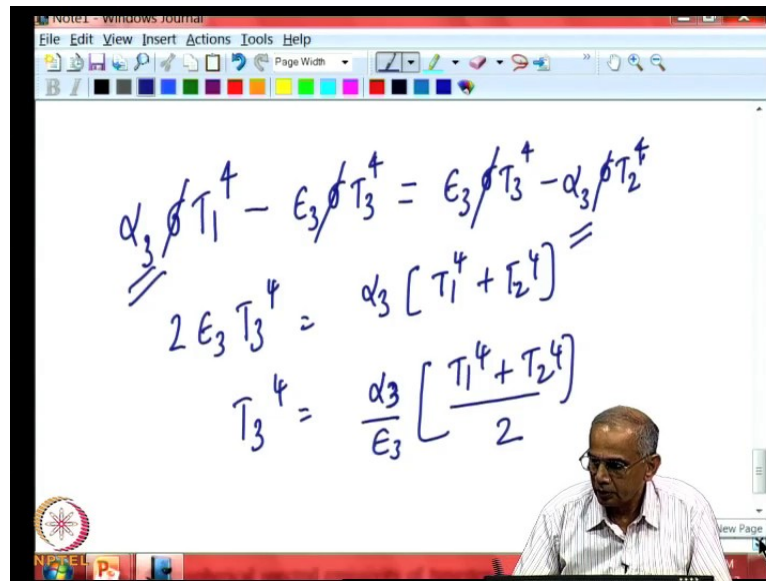 Note1 - Windows Journal
File Edit View Insert Actions Tools Help
Page Width
B I
α₃ σT₁⁴ - ϵ₃ σT₃⁴ = ϵ₃ σT₃⁴ - α₃ σT₂⁴
2 ϵ₃ T₃⁴ = α₃ [T₁⁴ + T₂⁴]
T₃⁴ = α₃/ϵ₃ [(T₁⁴ + T₂⁴)/2]
New Page
NPTEL